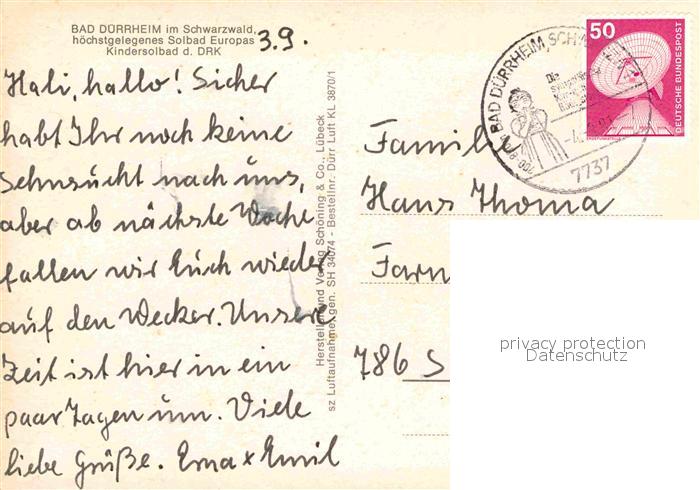 BAD DÜRRHEIM im Schwarzwald,
höchstgelegenes Solbad Europas
Kindersolbad d. DRK
3.9.
Hali, hallo! Sicher
habt Ihr noch keine
Sehnsucht nach uns,
aber ab nächste Woche
fallen wir Euch wieder
auf den Wecker. Unsere
Zeit ist hier in ein
paar Tagen um. Viele
liebe Grüße. Erna + Emil
Hersteller und Verlag Schöning & Co., Lübeck
sz Luftaufnahmen gen. SH 34074 - Bestellnr. Dürr Luft KL 3870/1
BAD DÜRRHEIM, SCHW
Die
7737
50
DEUTSCHE BUNDESPOST
Familie
Hans Thoma
Farn
786 S
privacy protection
Datenschutz